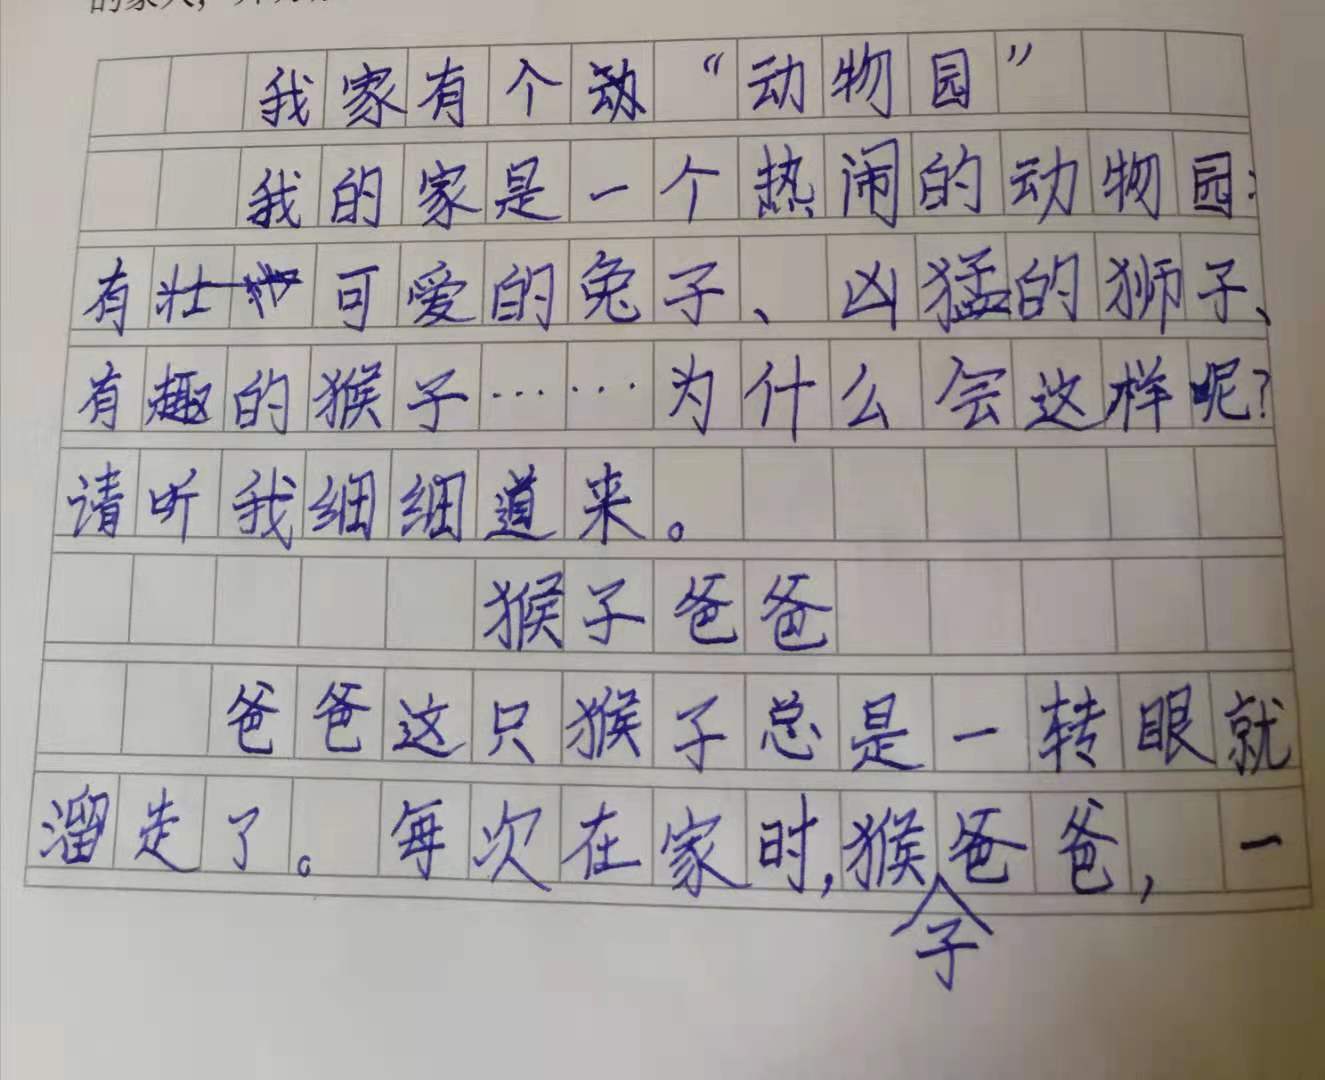 我家有个动“动物园”
我的家是一个热闹的动物园:
有可爱的兔子、凶猛的狮子、
有趣的猴子……为什么会这样呢?
请听我细细道来。
猴子爸爸
爸爸这只猴子总是一转眼就
溜走了。每次在家时,猴子爸爸,一